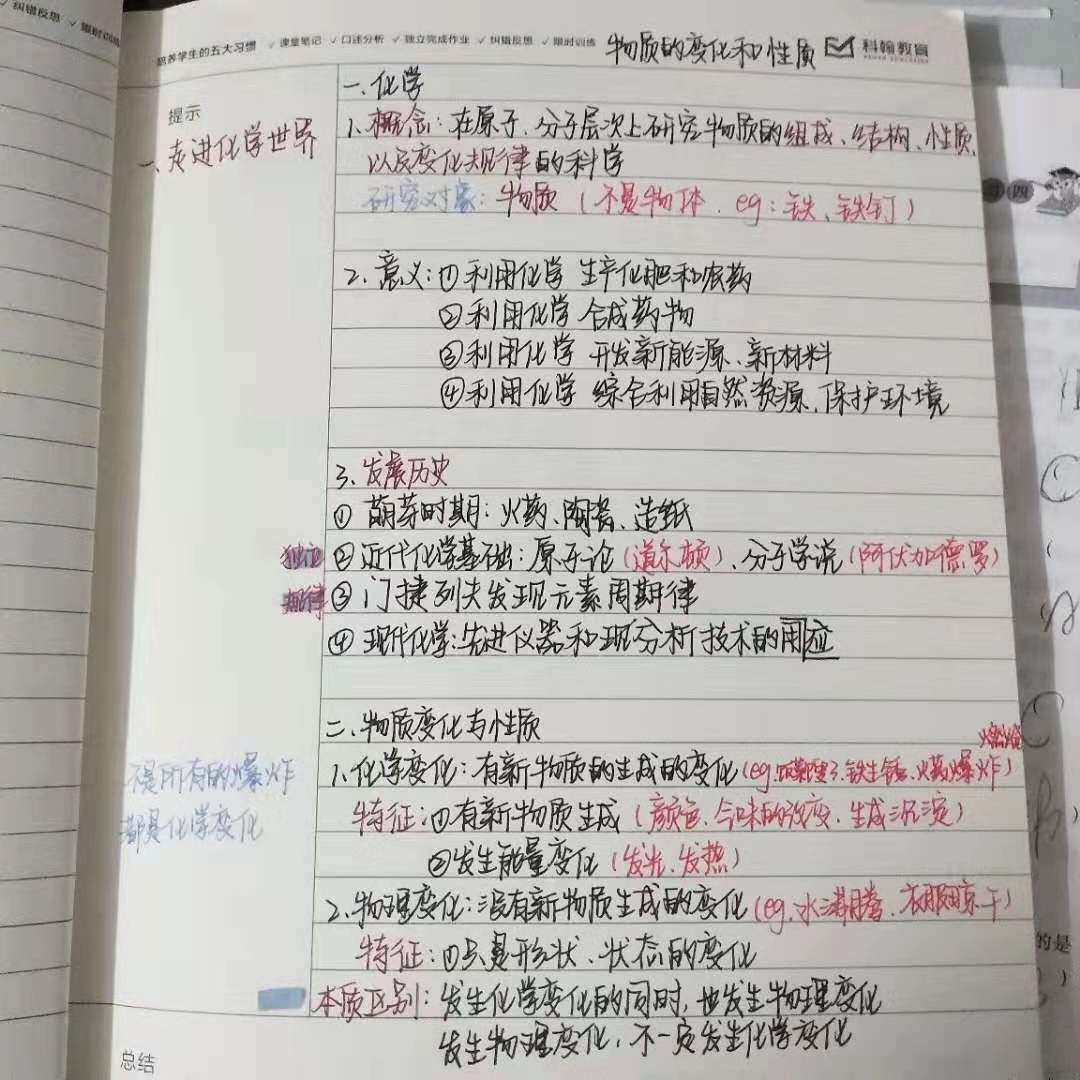 ✓ 纠错反思 ✓ 限时训练
培养学生的五大习惯 ✓ 课堂笔记 ✓ 口述分析 ✓ 独立完成作业 ✓ 纠错反思 ✓ 限时训练
物质的变化和性质
科翰教育
提示
一、走进化学世界
一.化学
1.概念:在原子、分子层次上研究物质的组成、结构、性质、
以及变化规律的科学
研究对象:物质(不是物体.eg:铁、铁钉)
2.意义:①利用化学 生产化肥和农药
②利用化学 合成药物
③利用化学 开发新能源、新材料
④利用化学 综合利用自然资源、保护环境
3.发展历史
①萌芽时期:火药、陶瓷、造纸
独立 ②近代化学基础:原子论(道尔顿)、分子学说(阿伏加德罗)
规律 ③门捷列夫发现元素周期律
④现代化学:先进仪器和现分析技术的用应
二.物质变化与性质
燃烧
1.化学变化:有新物质的生成的变化(eg.饭菜馊了.铁生锈.火药爆炸)
不是所有的爆炸
都是化学变化
特征:①有新物质生成(颜色、气味的改变、生成沉淀)
②发生能量变化(发光、发热)
2.物理变化:没有新物质生成的变化(eg.水沸腾、衣服晾干)
特征:①只是形状、状态的变化
本质区别:发生化学变化的同时,也发生物理变化
发生物理变化,不一定发生化学变化
总结
四
的是